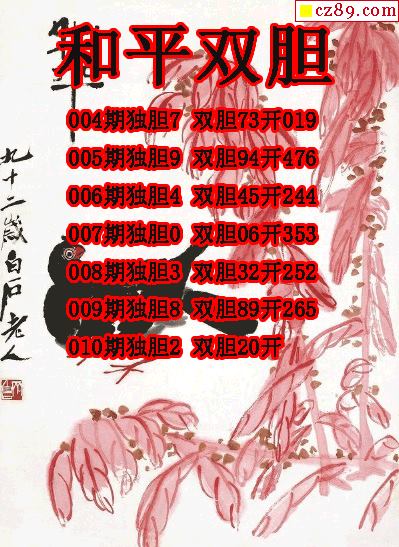 cz89.com
和平双胆
004期独胆7 双胆73开019
005期独胆9 双胆94开476
006期独胆4 双胆45开244
007期独胆0 双胆06开353
008期独胆3 双胆32开252
009期独胆8 双胆89开265
010期独胆2 双胆20开
九十二岁白石老人